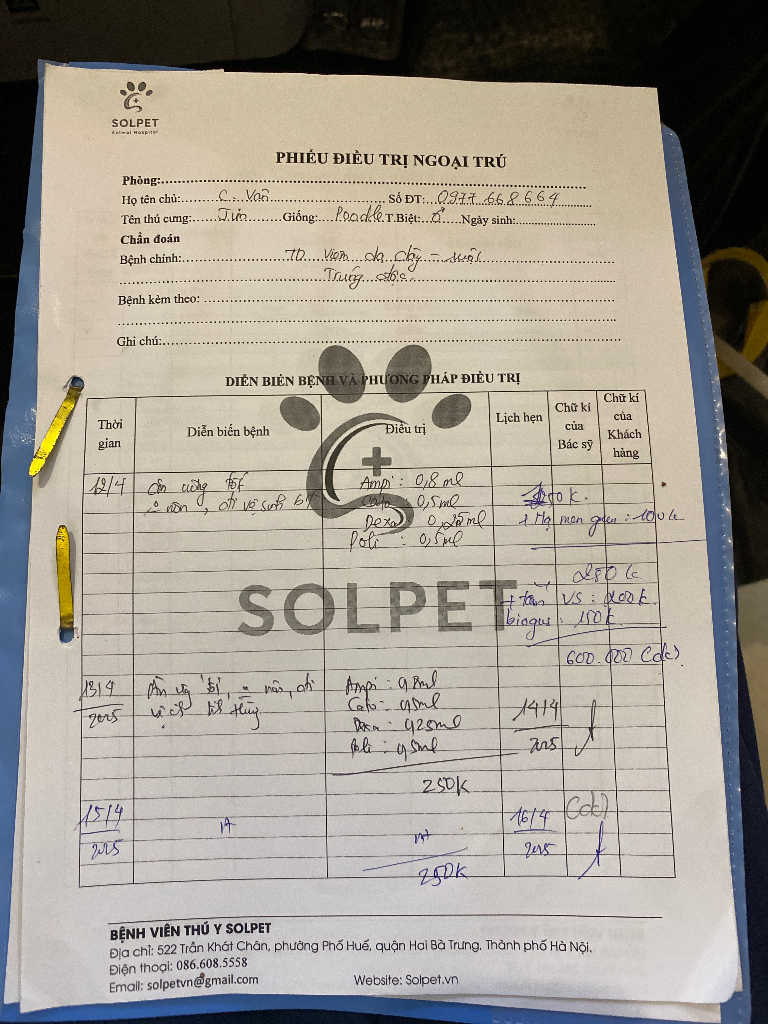 SOLPET
Animal Hospital
PHIẾU ĐIỀU TRỊ NGOẠI TRÚ
Phòng:
Họ tên chủ: C. Vân Số ĐT: 0977 668 664
Tên thú cưng: Giống: Poodle T.Biệt: ♂ Ngày sinh:
Chẩn đoán
Bệnh chính: TD viêm dạ dày - ruột
Trúng độc
Bệnh kèm theo:
Ghi chú:
DIỄN BIẾN BỆNH VÀ PHƯƠNG PHÁP ĐIỀU TRỊ
Thời gian Diễn biến bệnh Điều trị Lịch hẹn Chữ kí của Bác sỹ Chữ kí của Khách hàng
12/4 ăn uống tốt Ampi : 0,8 ml
nôn, đi vệ sinh bt Cato : 0,5ml
Dexa 0,25ml + Hạ men gan : 100k
Poli : 0,5ml
250k
SOLPET
+ tắm VS : 200k
biogus : 150k
600.000 (ck)
13/4 Ampi : 0,8ml
2025 Cato : 0,5ml 14/4
Dexa : 0,25ml 2025
Poli : 0,5ml
250K
15/4 16/4 (ck)
2025 2025
250K
BỆNH VIÊN THÚ Y SOLPET
Địa chỉ: 522 Trần Khát Chân, phường Phố Huế, quận Hai Bà Trưng. Thành phố Hà Nội.
Điện thoại: 086.608.5558
Email: solpetvn@gmail.com Website: Solpet.vn